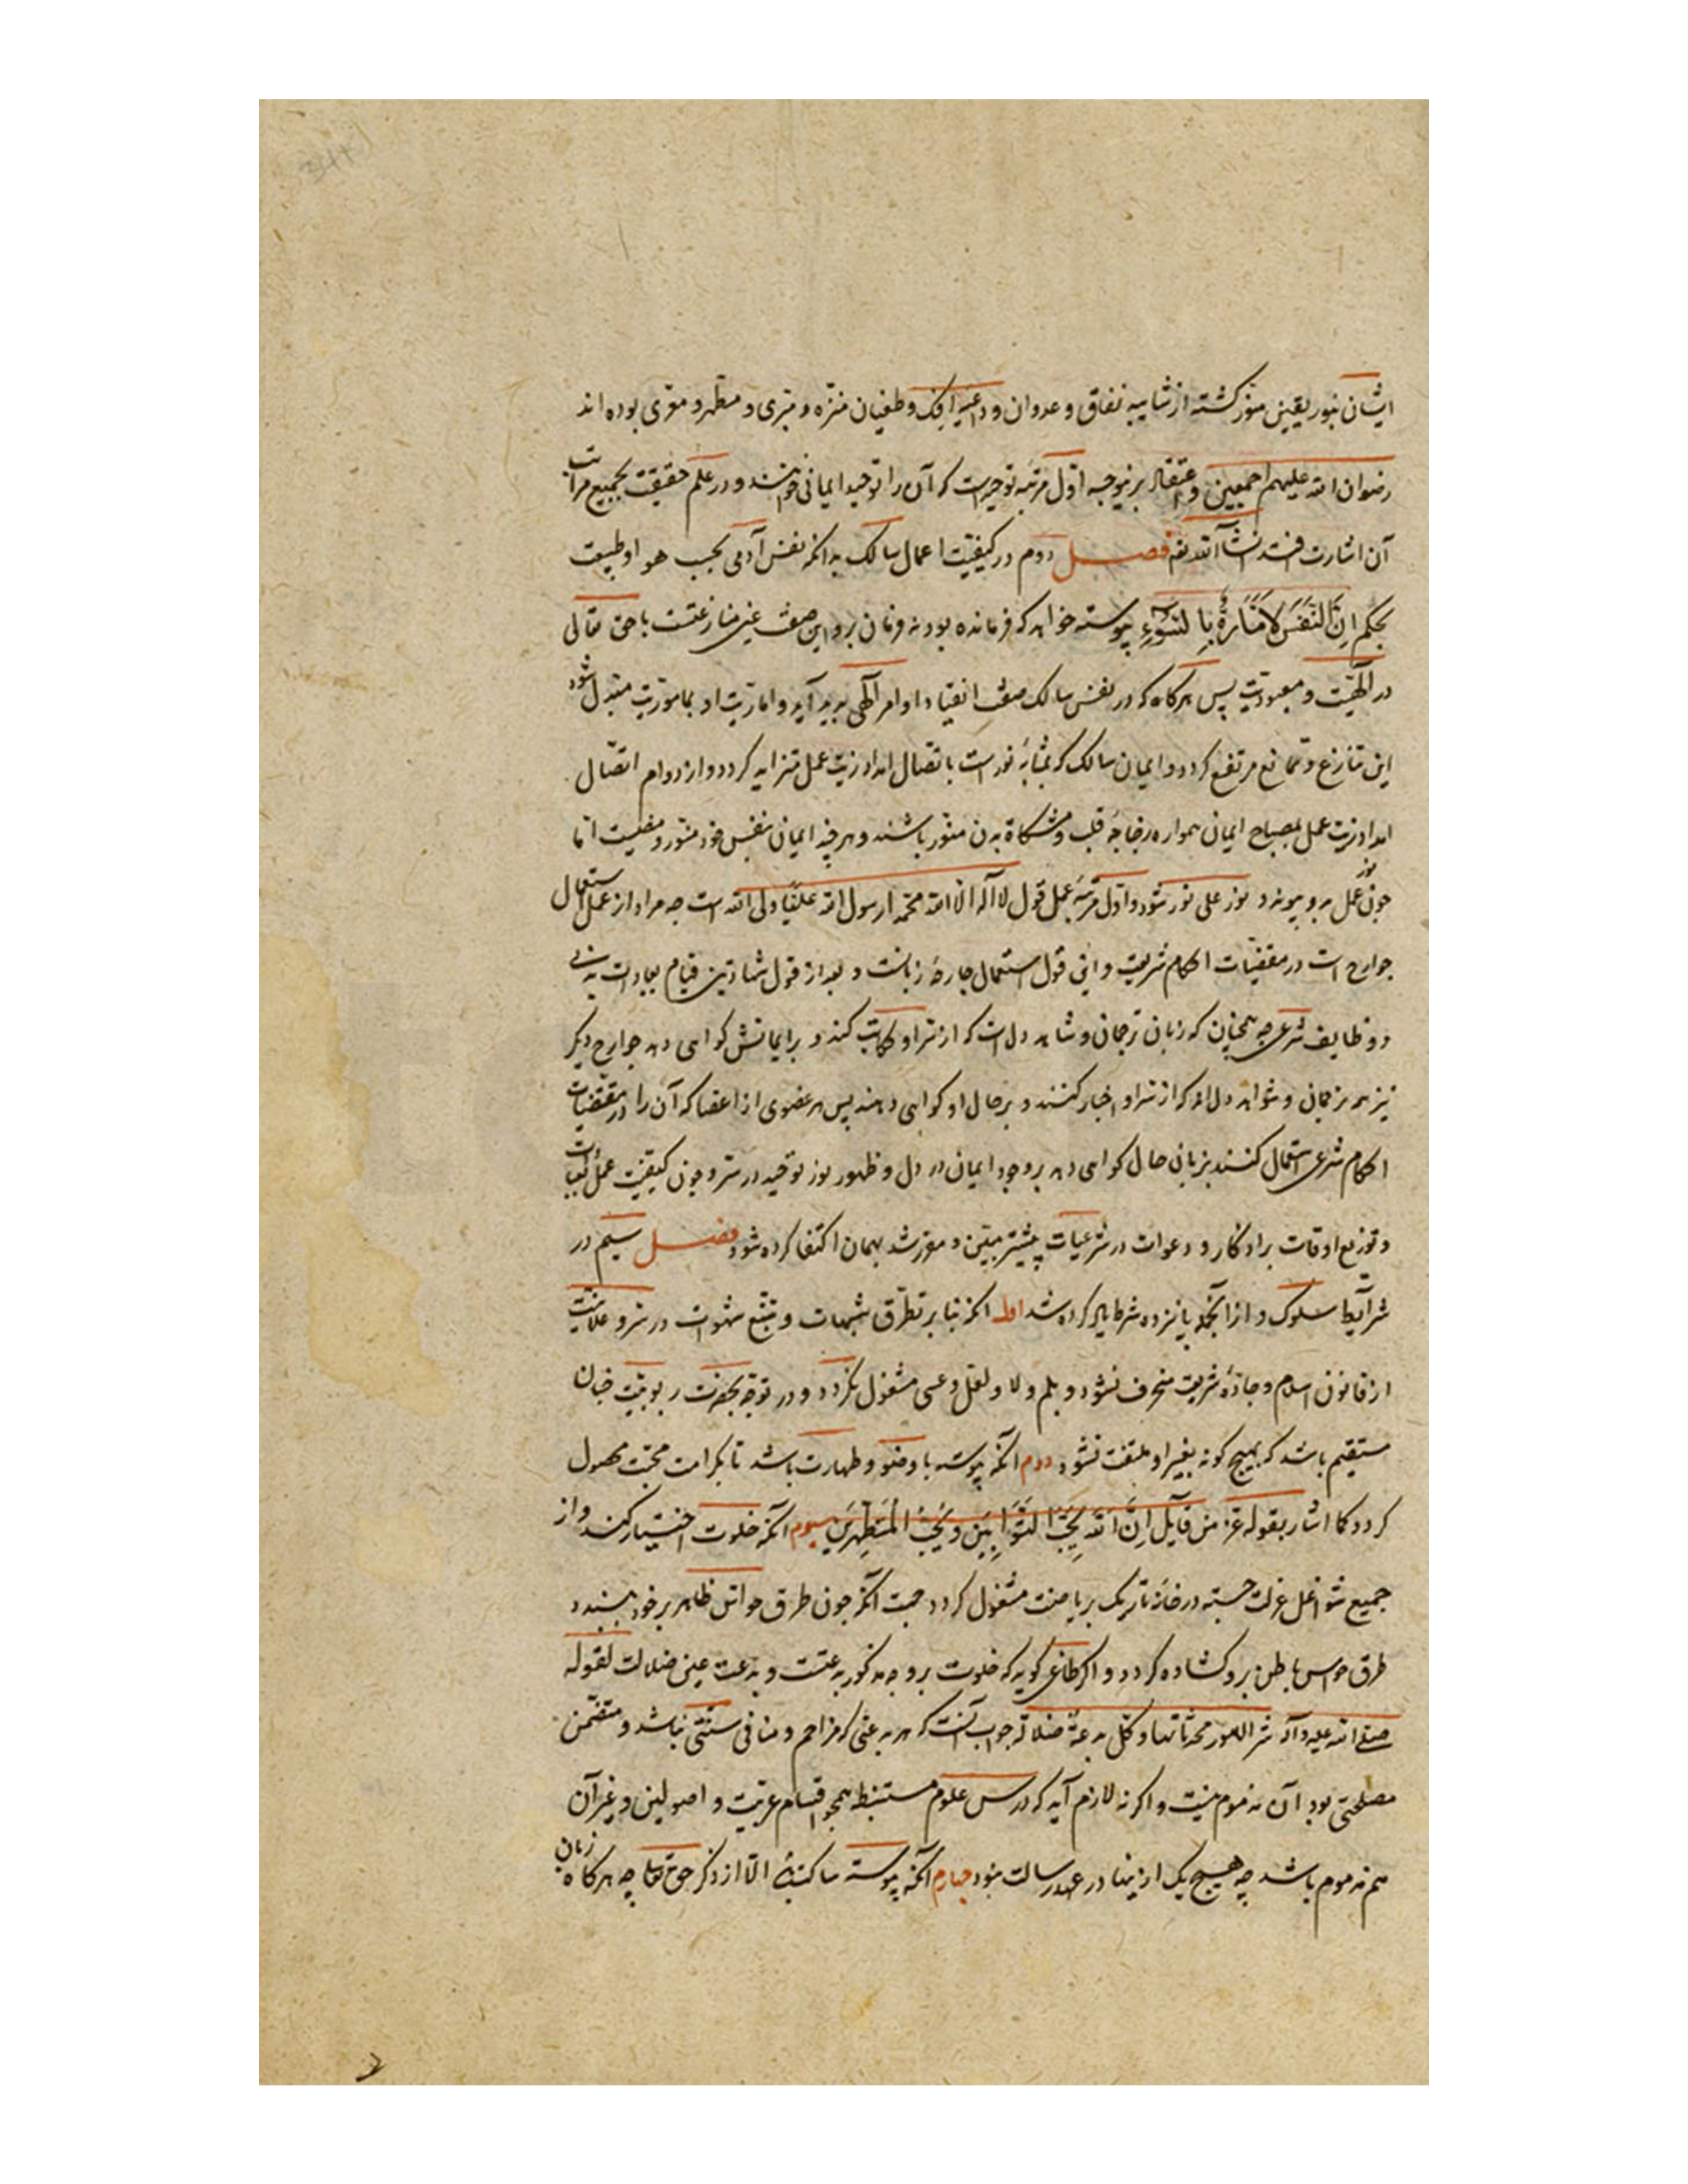 ایشان بنور یقین منور کشته از شایبه نفاق و عدوان و داعیه افک و طغیان منزه و مبری و مطهر و معری بوده اند
رضوان الله علیهم اجمعین و اعتقاد برینوجه اول مرتبه توحیدست که آن را توحید ایمانی خوانند و در علم حقیقت بجمیع مراتب
آن اشارت افتد انشآ الله تعه فصل دوم در کیفیت اعمال سالک بدانکه نفس آدمی بحسب هوا و طبیعت
بحکم اِنَّ النَّفْسَ لَاَمَّارَةٌ بِالسُّوءِ پیوسته خواهد که فرمانده بود نه فرمان بر و این صفت عین منازعتست با حق تعالی
در الهیت و معبودیت پس هرکاه که در نفس سالک صفت انقیاد اوامر الهی پدید آید و اماریت او بمأموریت مبدل شود
این تنازع و تمانع مرتفع کردد و ایمان سالک که بمثابه نورست باتصال امداد زیت عمل متزاید کردد و از دوام اتصال
امداد زیت عمل بمصباح ایمان همواره زجاجه قلب و مشکاة بدن منور باشند و هرچند ایمان بنفس خود منور و مضیست اما
چون نور عمل بدو پیوندد نور علی نور شود و اول مرتبه عمل قول لا اله الا الله محمد رسول الله علی ولی الله است چه مراد از عمل استعمال
جوارح است در مقتضیات احکام شریعت و این قول استعمال جارحه زبانست و بعد از قول شهادتین قیام بعبادات بدنی
و وظایف شرعی چه همچنان که زبان ترجمان و شاهد دلست که از سر او حکایت کند و بر ایمانش کواهی دهد جوارح دیکر
نیز هم ترجمان و شواهد دل اند که از سر او اخبار کنند و بر حال او کواهی دهند پس هر عضوی از اعضا که آن را در مقتضیات
احکام شرعی استعمال کنند بزبان حال کواهی دهد بر وجود ایمان در دل و ظهور نور توحید در سر و چون کیفیت عمل عبادات
و توزیع اوقات بر اذکار و دعوات در شرعیات پیشتر مبین و مقرر شد بهمان اکتفا کرده شود فصل سیم در
شرایط سلوک و از آنجمله پانزده شرط یاد کرده شد اول آنکه بنا بر تطرق شبهات و تتبع شهوات در سر و علانیت
از قانون اسلام و جاده شریعت منحرف نشود و بلم و لا و لعل و عسی مشغول نکردد و در توجه بحضرت ربوبیت چنان
مستقیم باشد که بهیچ کونه بغیر او ملتفت نشود دوم آنکه پیوسته با وضو و طهارت باشد تا بکرامت محبت موصول
کردد کما اشار بقوله عز من قایل اِنَّ اللهَ یُحِبُّ التَّوَّابِینَ وَیُحِبُّ الْمُتَطَهِّرِینَ سیوم آنکه خلوت اختیار کند و از
جمیع شواغل عزلت جسته در خانه تاریک بریاضت مشغول کردد جهت آنکه چون طرق حواس ظاهر بر خود ببندد
طرق حواس باطن برو کشاده کردد و اکر طاعنی کوید که خلوت بر وجه مذکور بدعتست و بدعت عین ضلالت لقوله
صلی الله علیه و آله شر الامور محدثاتها و کل بدعة ضلالة جواب آنست که هر بدعتی که مزاحم و منافی سنتی نباشد و متضمن
مصلحتی بود آن مذموم نیست و اکر نه لازم آید که درس علوم مستنبط همچو اقسام عربیت و اصولین و غیر آن
هم مذموم باشد چه هیچ یک ازینها در عهد رسالت نبود چهارم آنکه پیوسته ساکت باشد الا از ذکر حق تعا چه هرکاه زبان